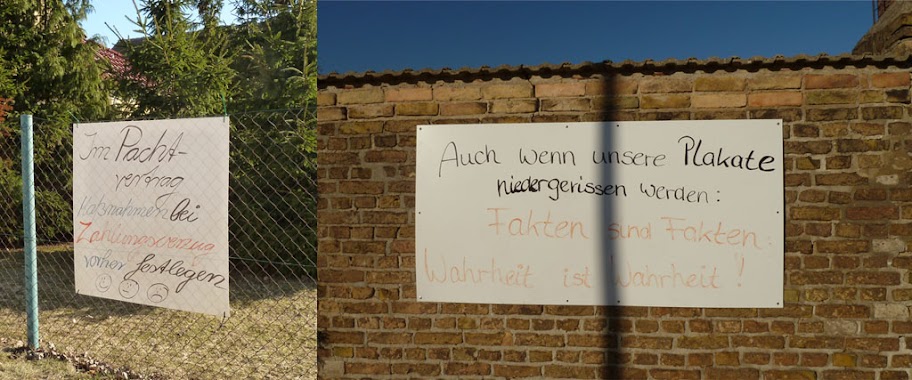 Im Pacht-
vertrag
Maßnahmen bei
Zahlungsverzug
vorher festlegen
Auch wenn unsere Plakate
niedergerissen werden:
Fakten sind Fakten:
Wahrheit ist Wahrheit!